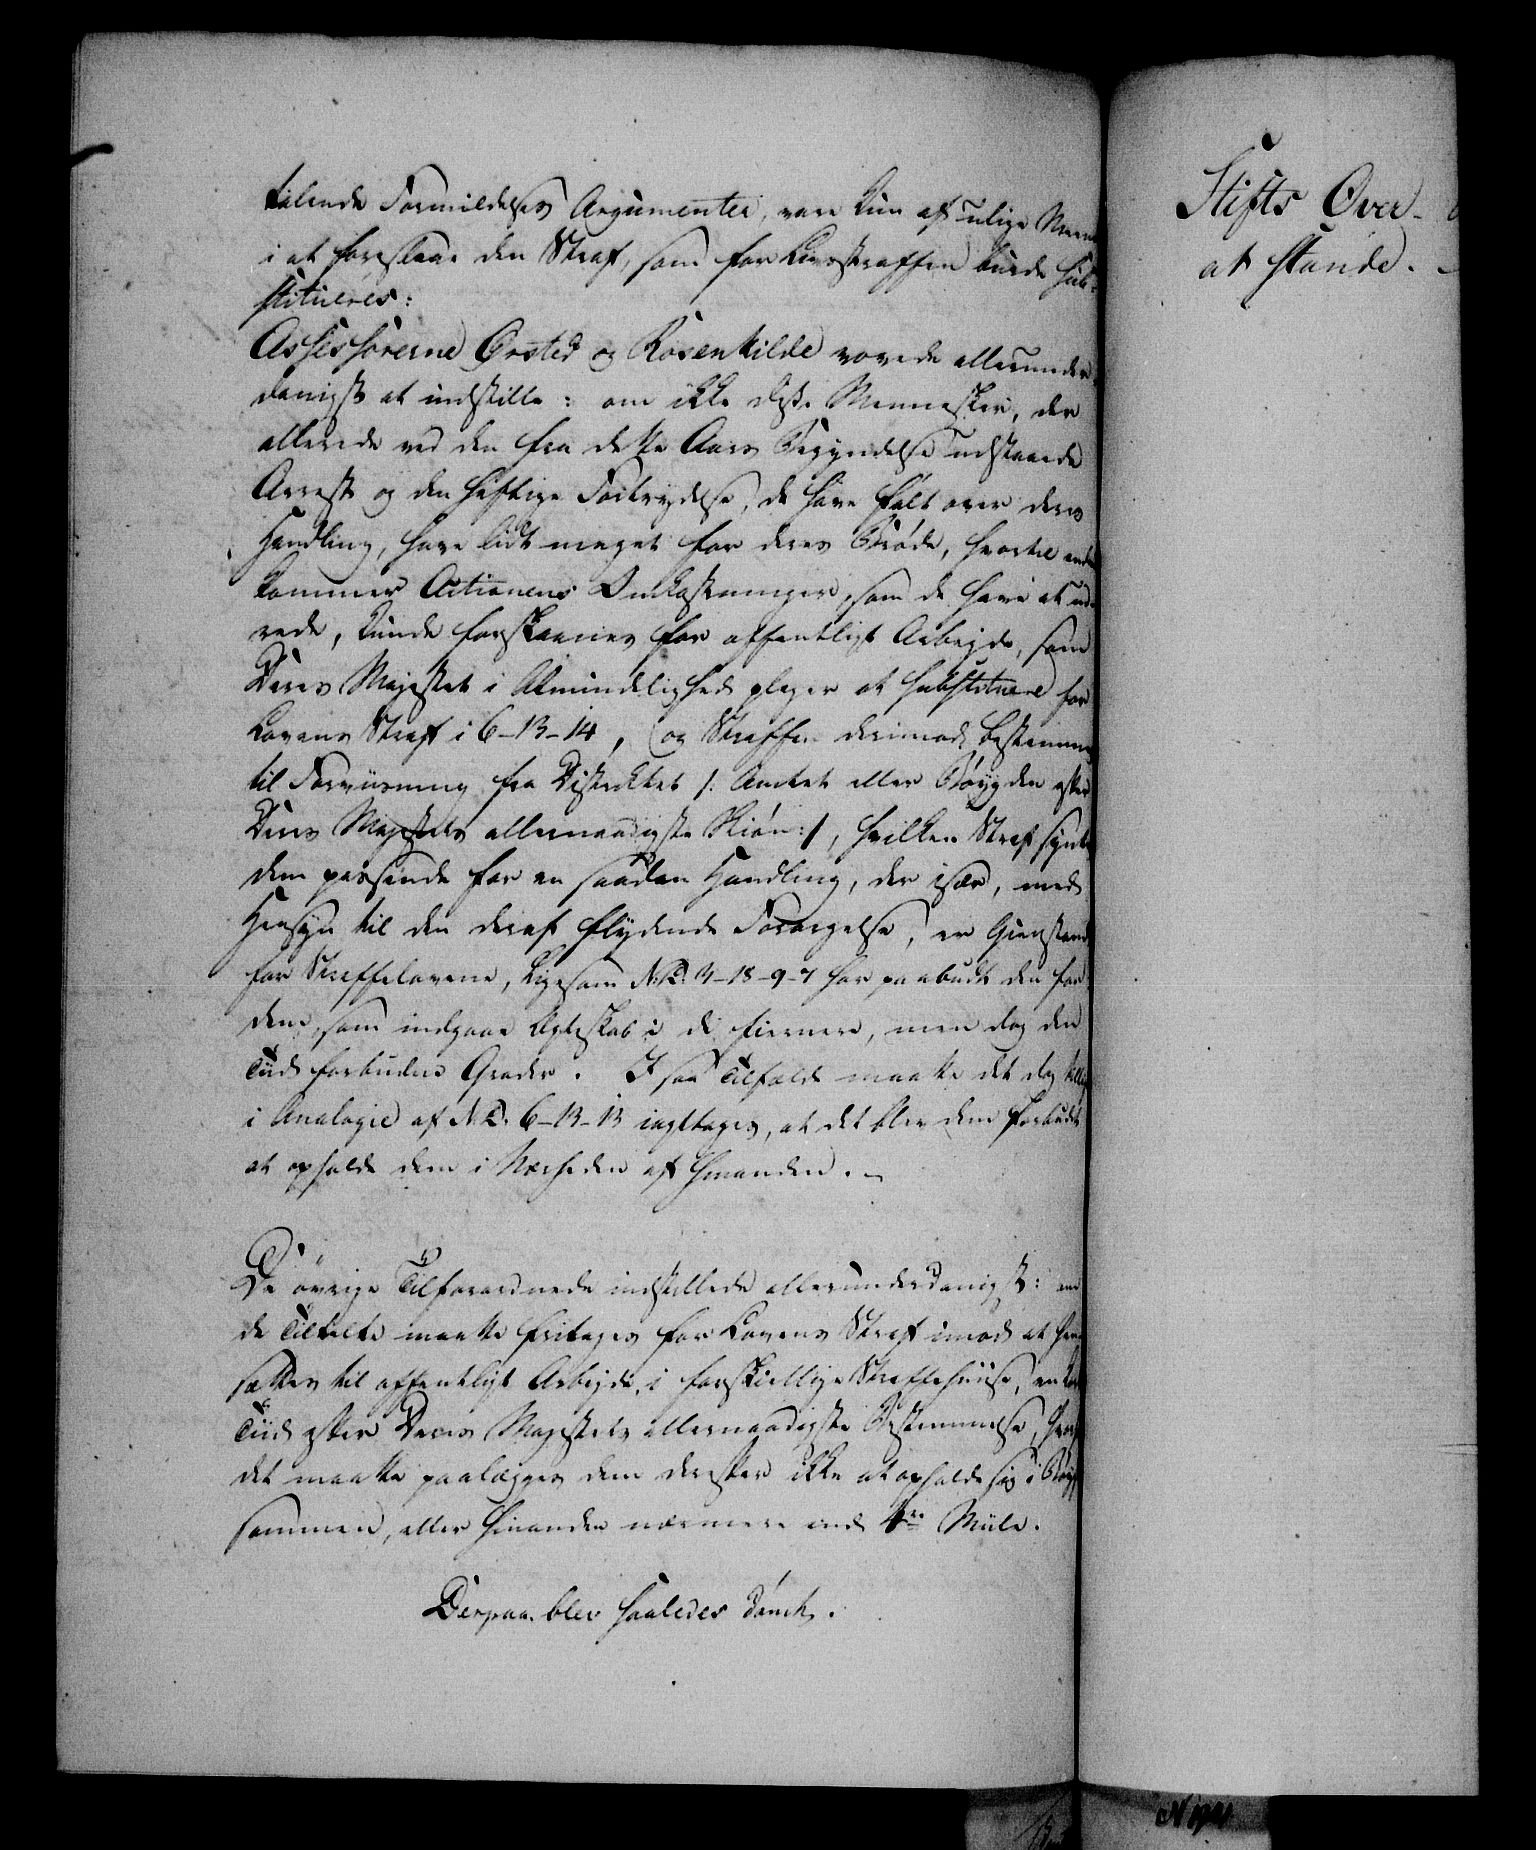 talende Formildelses Argumenter, vare kun af ulige Meening
i at foreslaae den Straf, som for Livsstraffen burde sub-
stitueres:
Assessorerne Ørsted og Rosenkilde vovede allerunder-
danigst at indstille: om ikke disse Mennesker, der
allerede ved den fra dette Aars Begyndelse udstaaede
Arrest og den heftige Fortrydelse, de have følt over deres
Handling, have lidt meget for deres Brøde, hvortil endnu
kommer Actionens Omkostninger, som de have at ud-
rede, kunde forskaanes for offentligt Arbeyde, som
Deres Majestet i Almindelighed pleyer at substituere for
Lovens Straf i 6-13-14, og Straffen derimod bestemmes
til Forviisning fra Districtet /: Amtet eller Bøygden efter
Deres Majestets allernaadigste Skiøn :/, hvilken Straf syntes
dem passende for en saadan Handling, der især, med
Hensyn til den deraf flydende Forargelse, er Gienstand
for Straffelovene, ligesom N: L: 3-18-9-7 har paabudt den for
dem, som indgaae Ægteskab i de fiernere, men dog den
Tiid forbudne Grader. I saa Tilfælde maatte det dog tillige
i Analogie af N: L: 6-13-13 iagttages, at det blev dem forbudt
at opholde dem i Nærheden af hinanden.
De øvrige Tilforordnede indstillede allerunderdanigst: om
de Tiltalte maatte fritages for Lovens Straf imod at hen-
sættes til offentligt Arbeyde, i forskiellige Straffehuuse, en kort
Tiid efter Deres Majestets allernaadigste Bestemmelse, hvorhos
det maatte paalægges dem derefter ikke at opholde sig i Bøygd
sammen, eller hinanden nærmere end 4re Miile.
Derpaa blev saaledes dømt.
Stifts Over-
at stande.